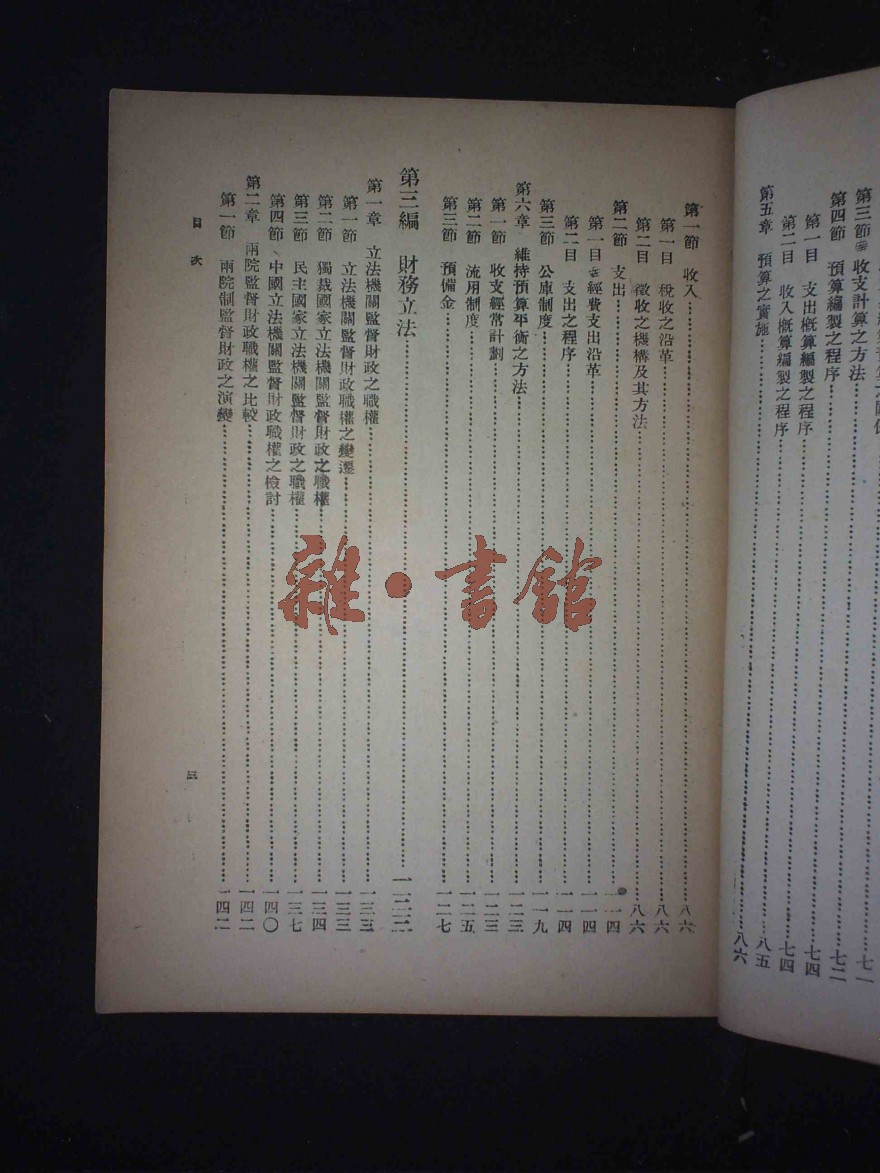 第三節 收支計算之方法……七一
第四節 預算編製之程序……七二
第一目 支出概算編製之程序……七四
第二目 收入概算編製之程序……七四
第五章 預算之實施……八五
八六
第一節 收入……八六
第一目 稅收之沿革……八六
第二目 徵收之機構及其方法……八六
第二節 支出……一一四
第一目 經費支出沿革……一一四
第二目 支出之程序……一一四
第三節 公庫制度……一一九
第六章 維持預算平衡之方法……一二三
第一節 收支經常計劃……一二三
第二節 流用制度……一二五
第三節 預備金……一二七
第三編 財務立法……一三三
第一章 立法機關監督財政之職權……一三三
第一節 立法機關監督財政職權之變遷……一三三
第二節 獨裁國家立法機關監督財政之職權……一三四
第三節 民主國家立法機關監督財政之職權……一三七
第四節 中國立法機關監督財政職權之檢討……一四〇
第二章 兩院監督財政職權之比較……一四二
第一節 兩院制監督財政之演變……一四二
目次
三
雜·書館